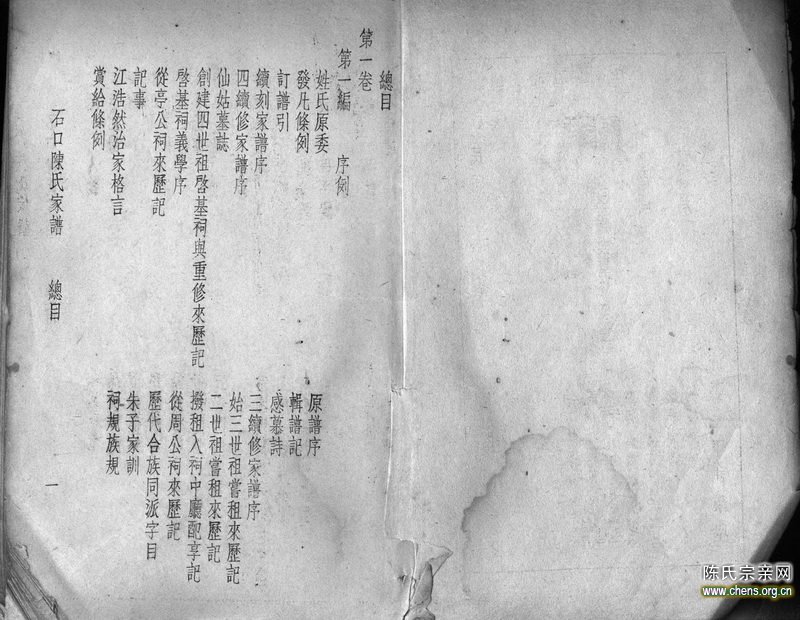 總目
第一卷
第一編 序例
姓氏原委
原譜序
發凡條例
輯譜記
訂譜引
感墓詩
續刻家譜序
三續修家譜序
四續修家譜序
始三世祖嘗租來歷記
仙姑墓誌
二世祖嘗租來歷記
創建四世祖啓基祠與重修來歷記
撥租入祠中廳配享記
啓基祠義學序
從周公祠來歷記
從亭公祠來歷記
歷代合族同派字目
記事
朱子家訓
江浩然治家格言
祠規族規
賞給條例
石口陳氏家譜 總目 一
陈氏宗亲网
www.chens.org.cn